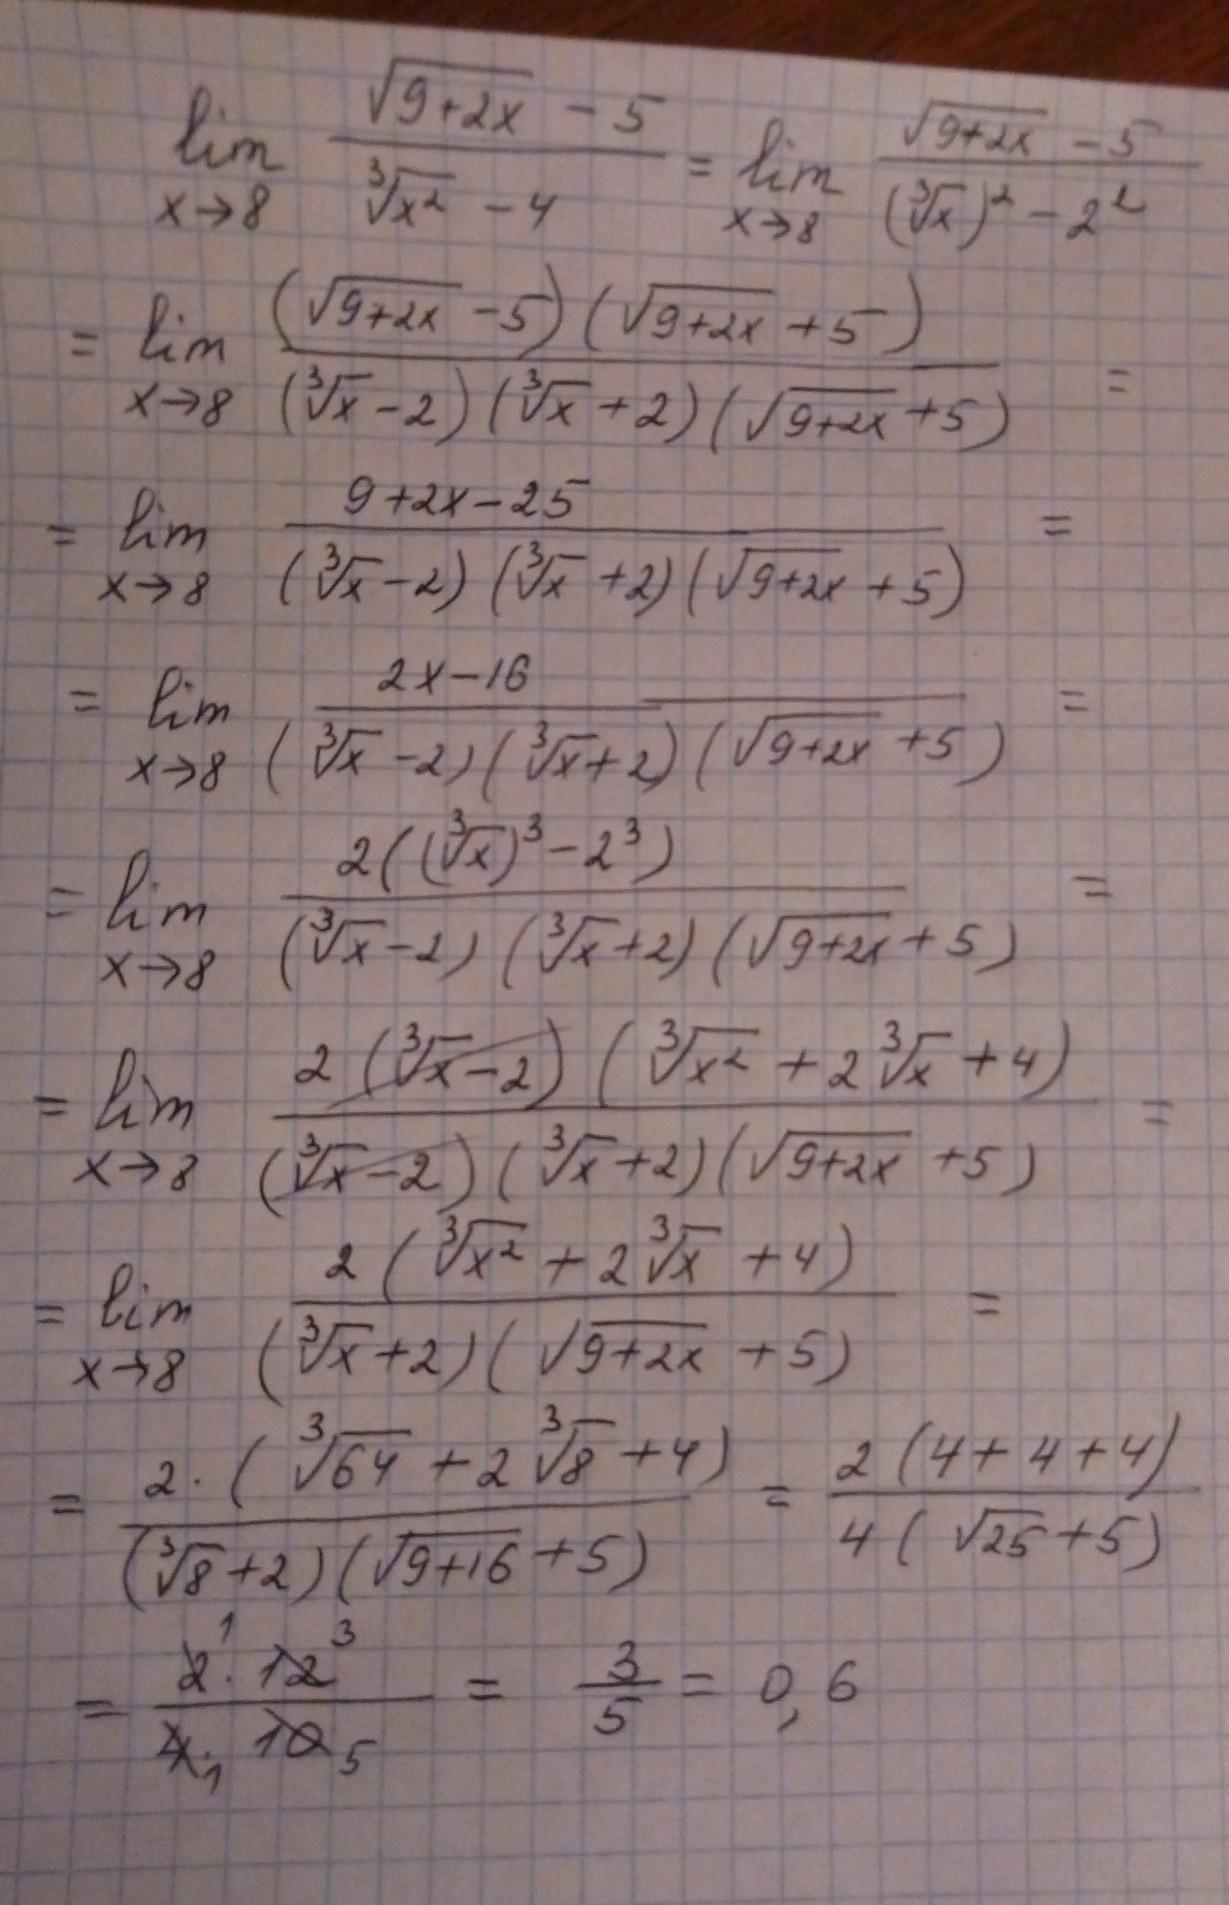 lim x→8 (√(9+2x) - 5)/(∛(x²) - 4) = lim x→8 (√(9+2x) - 5)/((∛x)² - 2²)
= lim x→8 ((√(9+2x) - 5)(√(9+2x) + 5))/((∛x - 2)(∛x + 2)(√(9+2x) + 5)) =
= lim x→8 (9+2x-25)/((∛x - 2)(∛x + 2)(√(9+2x) + 5)) =
= lim x→8 (2x-16)/((∛x - 2)(∛x + 2)(√(9+2x) + 5)) =
= lim x→8 (2((∛x)³ - 2³))/((∛x - 2)(∛x + 2)(√(9+2x) + 5)) =
= lim x→8 (2(∛x - 2)(∛(x²) + 2∛x + 4))/((∛x - 2)(∛x + 2)(√(9+2x) + 5)) =
= lim x→8 (2(∛(x²) + 2∛x + 4))/((∛x + 2)(√(9+2x) + 5)) =
= (2·(∛64 + 2∛8 + 4))/((∛8 + 2)(√(9+16) + 5)) = (2(4+4+4))/(4(√25 + 5))
= (2 1 · 12 3)/(4 1 · 10 5) = 3/5 = 0,6